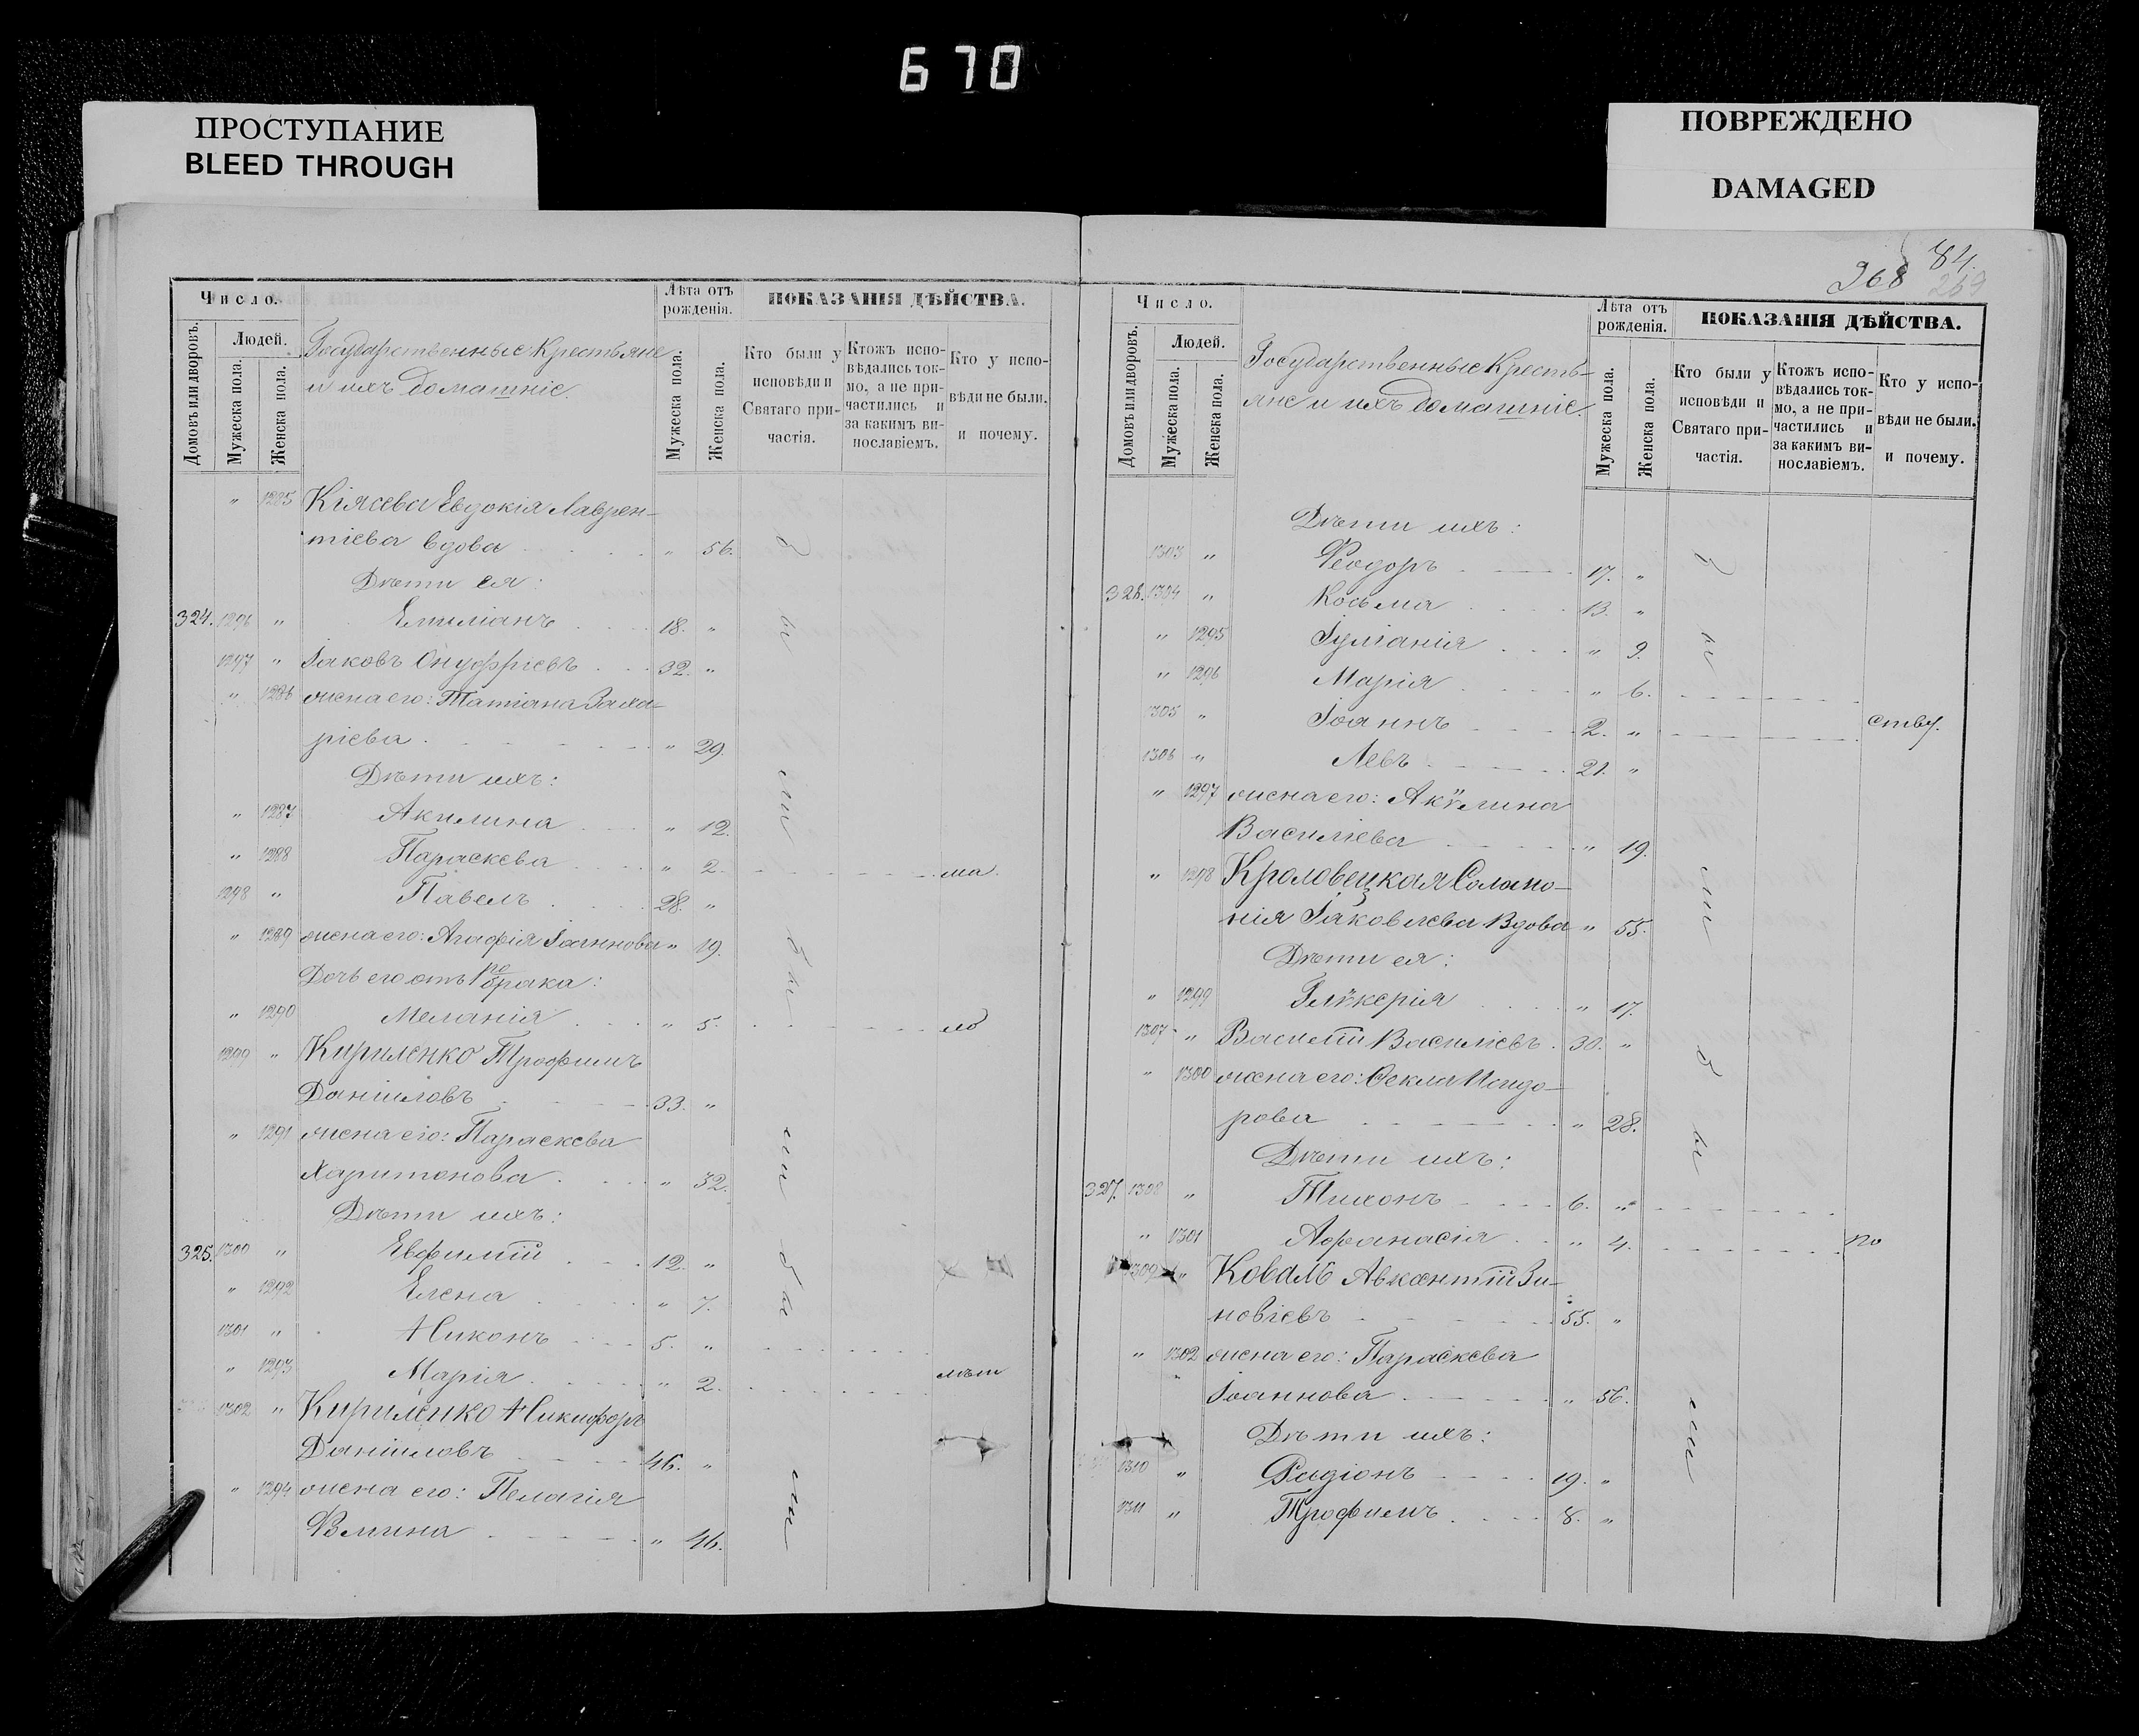 670
ПРОСТУПАНИЕ
BLEED THROUGH
ПОВРЕЖДЕНО
DAMAGED
Число.
Людей.
Домовъ или дворовъ.
Мужеска пола.
Женска пола.
Государственные Крестьяне
и ихъ домашніе.
Лѣта отъ рожденія.
Мужеска пола.
Женска пола.
ПОКАЗАНІЯ ДѢЙСТВА.
Кто были у исповѣди и Святаго причастія.
Ктожъ исповѣдались токмо, а не причастились и за какимъ винославіемъ.
Кто у исповѣди не были. и почему.
" 1285 Кіяева Евдокія Лаврен-
тіева вдова " 56.
Дѣти ея:
324. 1296 " Емиліанъ 18. "
1297 " Іаковъ Онуфріевъ 32. "
" 1286 жена его: Татіана Заха-
ріева " 29.
Дѣти ихъ:
" 1287 Акилина " 12.
" 1288 Параскева " 2. ма
1298 " Павелъ 28. "
" 1289 жена его: Агафія Іоаннова " 19.
Дочь его отъ 1го брака:
" 1290 Меланія " 5. ло
1299 " Кириленко Трофимъ
Даніиловъ 33. "
" 1291 жена его: Параскева
Харитонова " 32.
Дѣти ихъ:
325. 1300 " Евфимій 12. "
" 1292 Елена " 7.
1301 " Никонъ 5. "
" 1293 Марія " 2. лѣт
1302 " Кириленко Никифоръ
Даніиловъ 46. "
" 1294 жена его: Пелагія
Фомина " 46.
были были
84.
268 269
Число.
Людей.
Домовъ или дворовъ.
Мужеска пола.
Женска пола.
Государственные Кресть-
яне и ихъ домашніе.
Лѣта отъ рожденія.
Мужеска пола.
Женска пола.
ПОКАЗАНІЯ ДѢЙСТВА.
Кто были у исповѣди и Святаго причастія.
Ктожъ исповѣдались токмо, а не причастились и за какимъ винославіемъ.
Кто у исповѣди не были. и почему.
Дѣти ихъ:
1303 " Феодоръ 17. "
326. 1304 " Косьма 13. "
" 1295 Іуліанія " 9.
" 1296 Марія " 6.
1305 " Іоаннъ 2. " ству.
1306 " Левъ 21. "
" 1297 жена его: Акѵлина
Василіева " 19.
" 1298 Кроловецкая Соломо-
нія Іаковлева Вдова " 55.
Дѣти ея:
" 1299 Глѵкерія " 17.
1307 " Василій Василіевъ 30. "
" 1300 жена его: Ѳекла Исидо-
рова " 28.
Дѣти ихъ:
327. 1308 " Тихонъ 6. "
" 1301 Афанасія " 4. по
1309 " Коваль Авксентій Зи-
новіевъ 55. "
" 1302 жена его: Параскева
Іоаннова " 56.
Дѣти ихъ:
1310 " Родіонъ 19. "
1311 " Трофимъ 8. "
были были